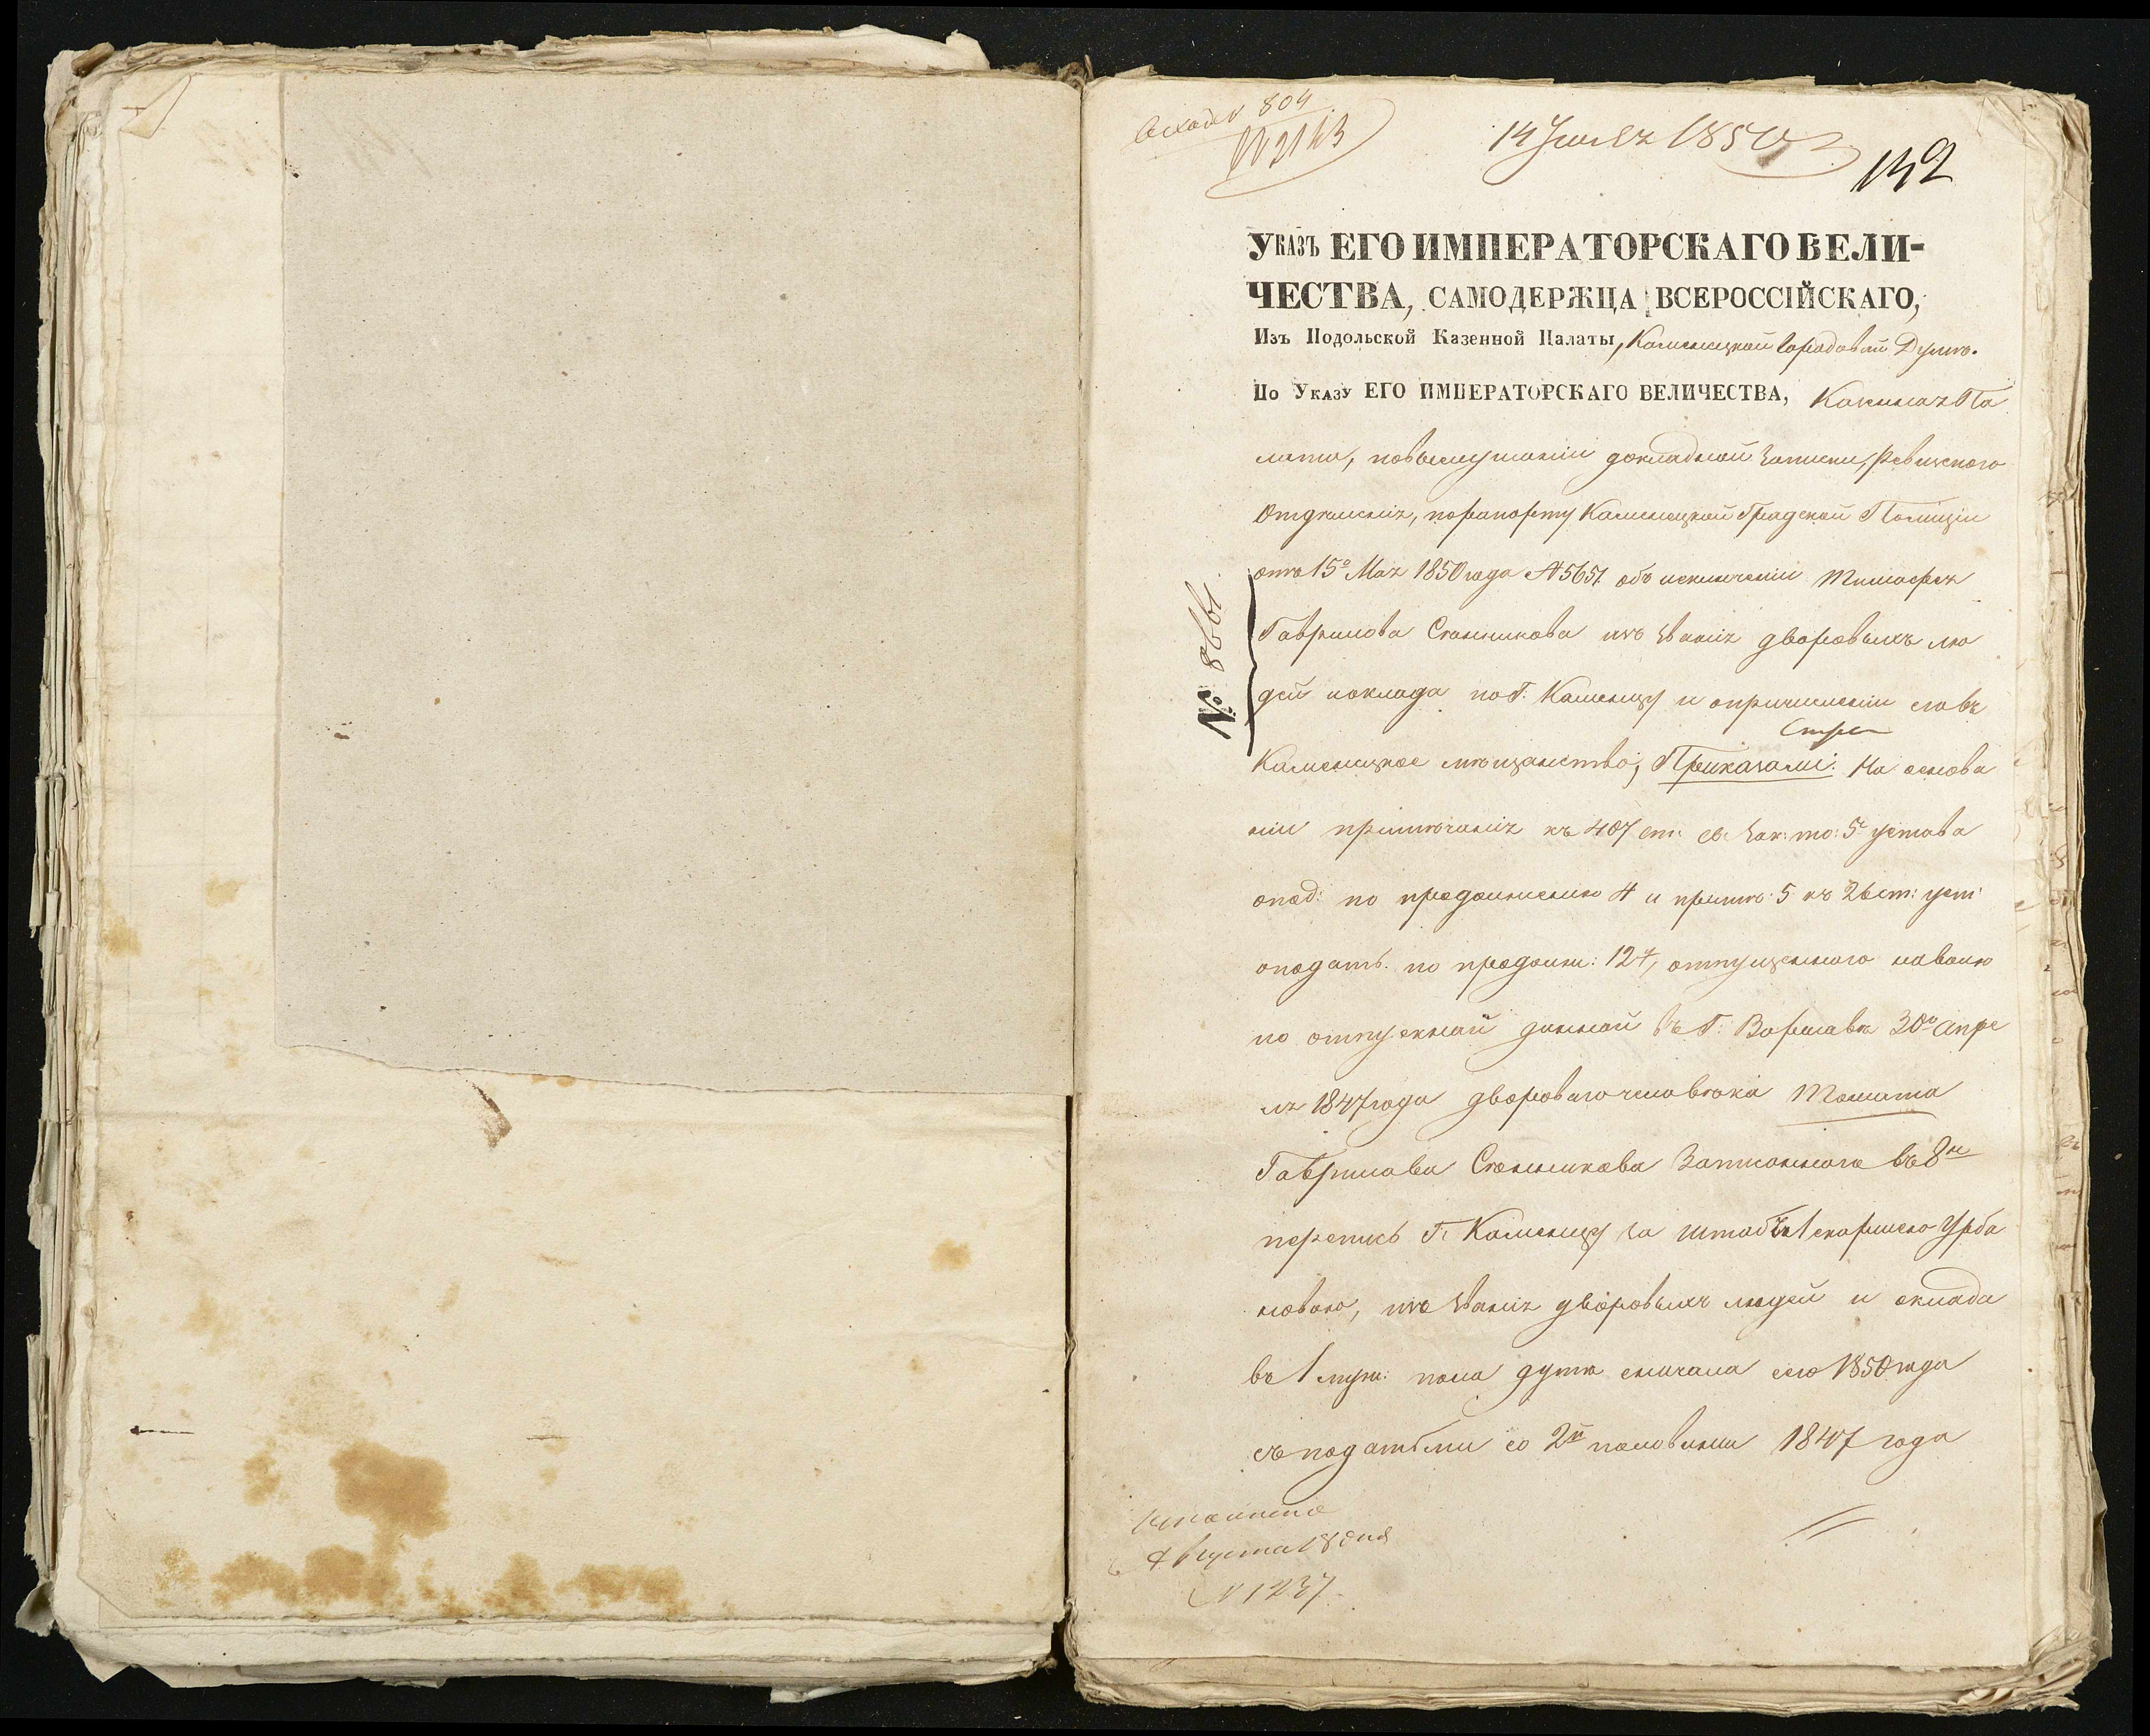 804
№ 2143
14 Іюля 1850 г.
142
Указъ ЕГО ИМПЕРАТОРСКАГО ВЕЛИ-
ЧЕСТВА, САМОДЕРЖЦА ВСЕРОССІЙСКАГО,
Изъ Подольской Казенной Палаты, Каменецкой Городовой Думѣ.
По Указу ЕГО ИМПЕРАТОРСКАГО ВЕЛИЧЕСТВА, Казенная Па
лата, по выслушаніи докладной записки, Ревизского
Отдѣленія, по рапорту Каменецкой Градской Полиціи
отъ 15го Мая 1850 года № 5651. объ исключеніи Тимофея
Гаврилова Сканникова изъ званія дворовыхъ лю
дей и оклада по Г. Каменцу и о причисленіи его въ
№ 8661.
Каменецкое мѣщанство, Приказали: На основа
ніи примѣчанія къ 407 ст: св. Зак: то: 5 устава
о под: по продолженію 4 и примѣ: 5 къ 26 ст: уст:
о подать. по продолж: 12у, отпущенного на волю
по отпускной данной въ Г. Варшавѣ 30го Апре
ля 1847 года дворового человѣка
Гаврилова Сканникова Записанного въ 8ю
перепись Г. Каменцу за Урба
новою, изъ званія дворовыхъ людей и оклада
въ 1 муж: пола душѣ сначала сего 1850 года
съ податьми со 2й половины 1847 года
Августа 18 дня
№ 1237